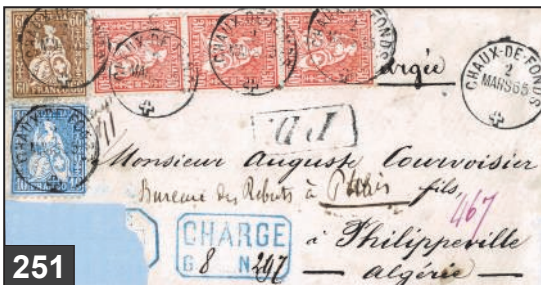 60 FRANCO 60
CHAUX-DE-FONDS
CHAUX-DE-FONDS
CHAUX-DE-FONDS
CHAUX-DE-FONDS
2
MARS 65
P.D.
Monsieur Auguste Courvoisier
Bureau des Rebuts à Paris fils,
467
CHARGÉ
G 8 N 297
à Philippeville
— Algérie —
251